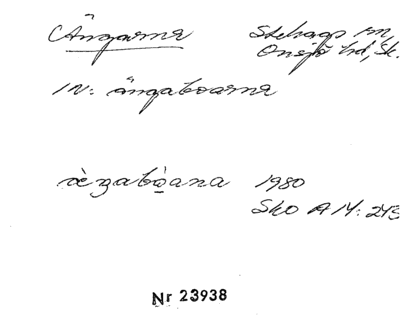 Ängarna Stehags sn,
Onsjö hd, Sk.
IN: ängaboarna
1980
Sko A 14: 243
Nr 23938